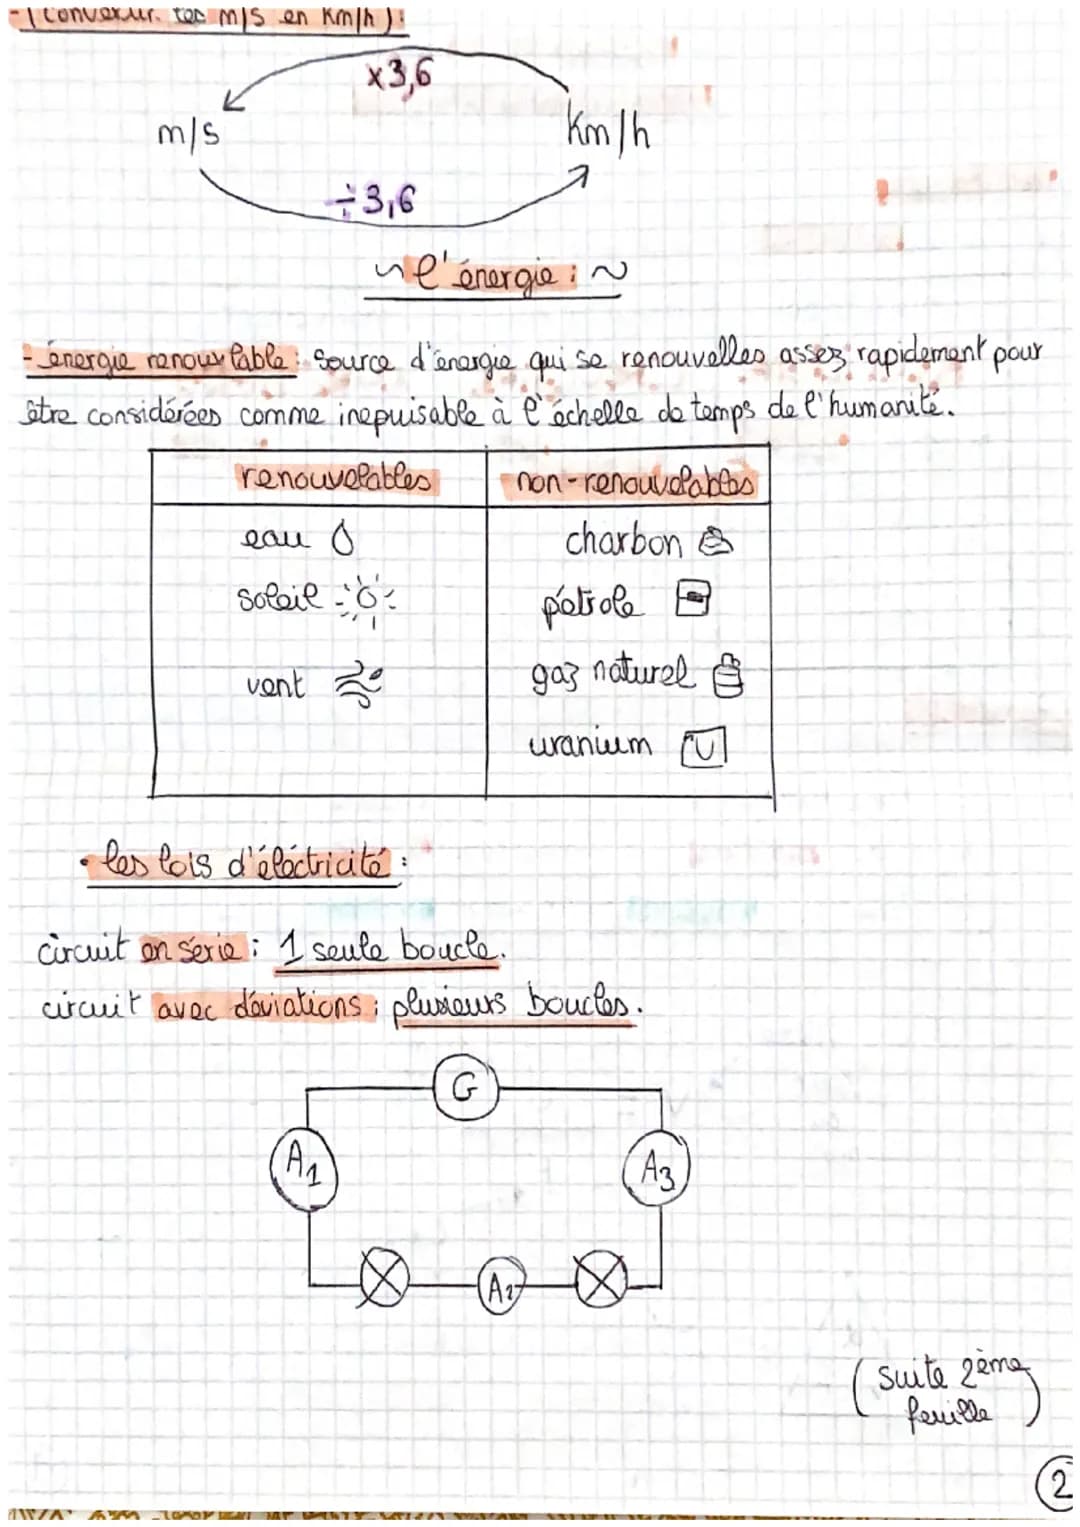 - (convertir les m/s en km/h):
x3,6
m/s km/h
÷3,6
~ l'énergie : ~
- énergie renouvlable : source d'énergie qui se renouvelles assez rapidement pour
être considérées comme inepuisable à l'échelle de temps de l'humanité.
renouvelables non-renouvelables
eau charbon
soleil pétrole
vent gaz naturel
uranium U
• les lois d'éléctricité :
circuit en série : 1 seule boucle.
circuit avec déviations : plusieurs boucles.
G
A1 A3
A2
(suite 2ème
feuille)
2